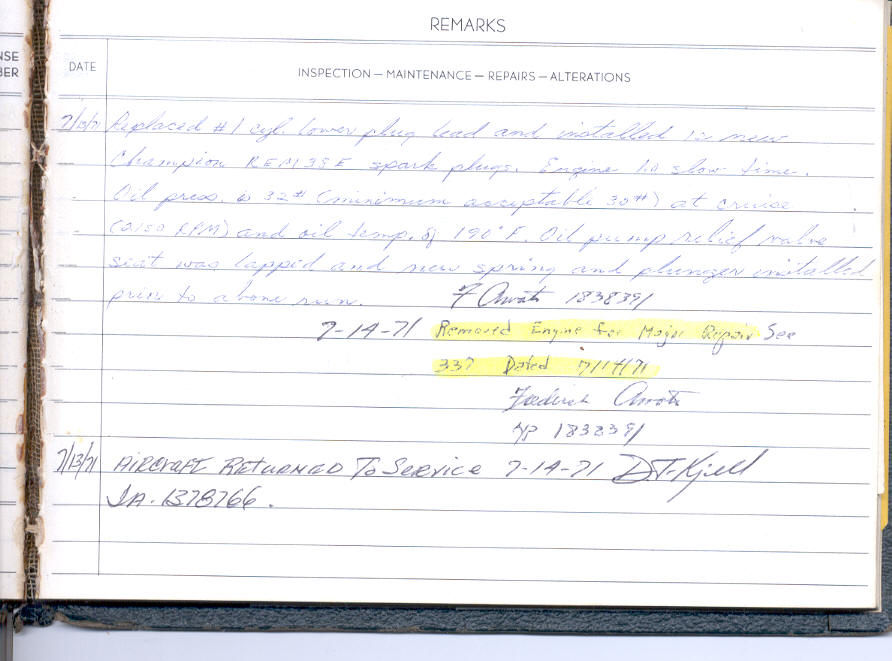 NSE
BER
REMARKS
DATE
INSPECTION — MAINTENANCE — REPAIRS — ALTERATIONS
7/10/71 Replaced #1 cyl. lower plug lead and installed 12 new
Champion REM38E spark plugs. Engine slow time.
Oil press. 32# (minimum acceptable 30#) at cruise
(2150 RPM) and oil temp. of 190°F. Oil pump relief valve
seat was lapped and new spring and plunger installed
prior to above run. F 1838391
7-14-71 Removed Engine for Major Repair See
337 Dated 7/14/71
1838391
7/13/71 AIRCRAFT RETURNED TO SERVICE 7-14-71 D.T. Kjell
IA-1378766.